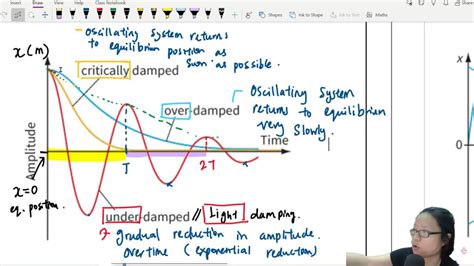 Draw
View
Class Notebook
Ink to Shape
Ink to Text
- Oscillating System returns
to equilibrium position as
soon as possible.
x (m)
critically damped
over-damped
- Oscillating System
returns to equilibrium
very slowly.
Amplitude
Time
T
2T
x=0
eq. position.
under-damped // Light damping.
gradual reduction in amplitude.
overtime (exponential reduction)
x
0